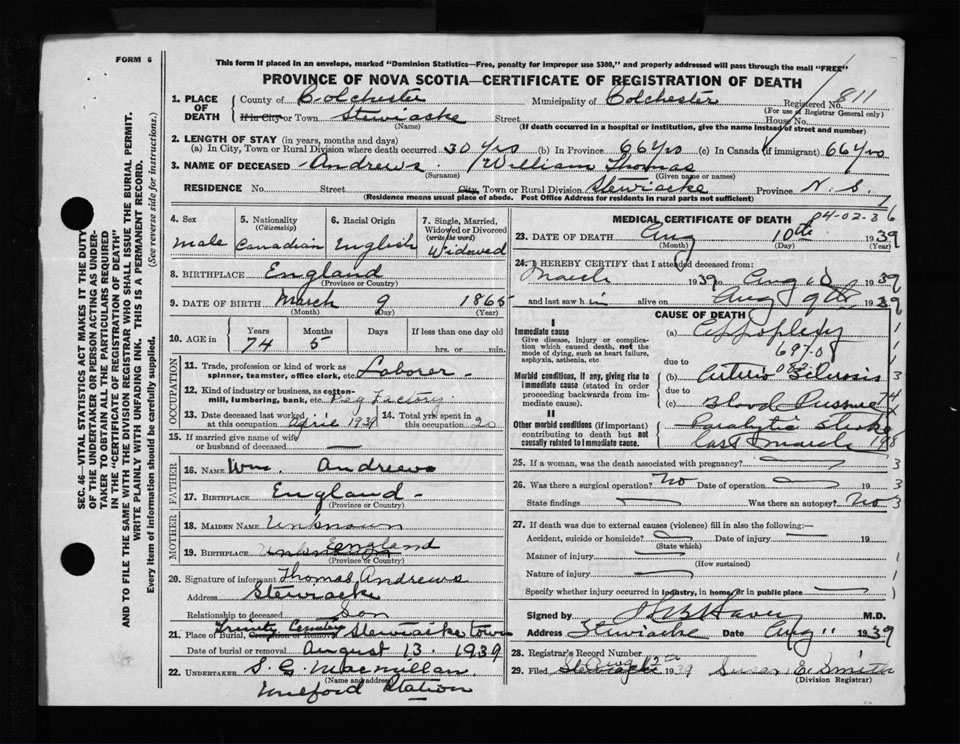 FORM 6
This form if placed in an envelope, marked "Dominion Statistics—Free, penalty for improper use $300," and properly addressed will pass through the mail "FREE"
PROVINCE OF NOVA SCOTIA—CERTIFICATE OF REGISTRATION OF DEATH
1. PLACE OF DEATH County of Colchester Municipality of Colchester Registered No. 811
(For use of Registrar General only)
If in City or Town Stewiacke Street House No.
(Name) (If death occurred in a hospital or institution, give the name instead of street and number)
2. LENGTH OF STAY (in years, months and days)
(a) In City, Town or Rural Division where death occurred 30 yrs (b) In Province 66 yrs (c) In Canada (if immigrant) 66 yrs
3. NAME OF DECEASED Andrews William Thomas
(Surname) (Given name or names)
RESIDENCE No. Street City, Town or Rural Division Stewiacke Province N.S.
(Residence means usual place of abode. Post Office Address for residents in rural parts not sufficient)
4. Sex male
5. Nationality (Citizenship) Canadian
6. Racial Origin English
7. Single, Married, Widowed or Divorced (write the word) Widowed
8. BIRTHPLACE England
(Province or Country)
9. DATE OF BIRTH March 9 1865
(Month) (Day) (Year)
10. AGE in Years Months Days If less than one day old
74 5 hrs. or min.
OCCUPATION
11. Trade, profession or kind of work as spinner, teamster, office clerk, etc. Laborer
12. Kind of industry or business, as cotton-mill, lumbering, bank, etc. Peg Factory
13. Date deceased last worked at this occupation April 1939
14. Total yrs. spent in this occupation 20
15. If married give name of wife or husband of deceased
FATHER
16. NAME Wm. Andrews
17. BIRTHPLACE England
(Province or Country)
MOTHER
18. MAIDEN NAME Unknown
19. BIRTHPLACE Unknown England
(Province or Country)
20. Signature of informant Thomas Andrews
Address Stewiacke
Relationship to deceased Son
21. Place of Burial, Cremation or Removal Trinity Cemetery Stewiacke town
Date of burial or removal August 13. 1939
22. UNDERTAKER S. G. Macmillan
(Name and address)
Milford Station
MEDICAL CERTIFICATE OF DEATH
04-02-3 6
23. DATE OF DEATH Aug 10th 1939
(Month) (Day) (Year)
24. I HEREBY CERTIFY that I attended deceased from:
March 1939 to Aug 10 1939
and last saw him alive on Aug 9th 1939
CAUSE OF DEATH
I
Immediate cause (a) Appoplexy
Give disease, injury or complication which caused death, not the mode of dying, such as heart failure, asphyxia, asthenia, etc.
697-0
due to
Morbid conditions, if any, giving rise to immediate cause (stated in order proceeding backwards from immediate cause.) (b) Arterio Sclerosis
due to
(c) Blood Pressure
II
Other morbid conditions (if important) contributing to death but not causally related to immediate cause. Paralytic Stroke
last March
25. If a woman, was the death associated with pregnancy?
26. Was there a surgical operation? No Date of operation
State findings Was there an autopsy? No
27. If death was due to external causes (violence) fill in also the following:—
Accident, suicide or homicide? Date of injury 19
(State which)
Manner of injury
(How sustained)
Nature of injury
Specify whether injury occurred in industry, in home or in public place
Signed by M.D.
Address Stewiacke Date Aug 11 1939
28. Registrar's Record Number
29. Filed Stewiacke Aug 12th 1939 Susan E. Smith
(Division Registrar)
SEC. 46—VITAL STATISTICS ACT MAKES IT THE DUTY OF THE UNDERTAKER OR PERSON ACTING AS UNDERTAKER TO OBTAIN ALL THE PARTICULARS REQUIRED IN THE "CERTIFICATE OF REGISTRATION OF DEATH" AND TO FILE THE SAME WITH THE DIVISION REGISTRAR WHO SHALL ISSUE THE BURIAL PERMIT.
WRITE PLAINLY WITH UNFADING INK. THIS IS A PERMANENT RECORD.
Every item of information should be carefully supplied. (See reverse side for instructions.)